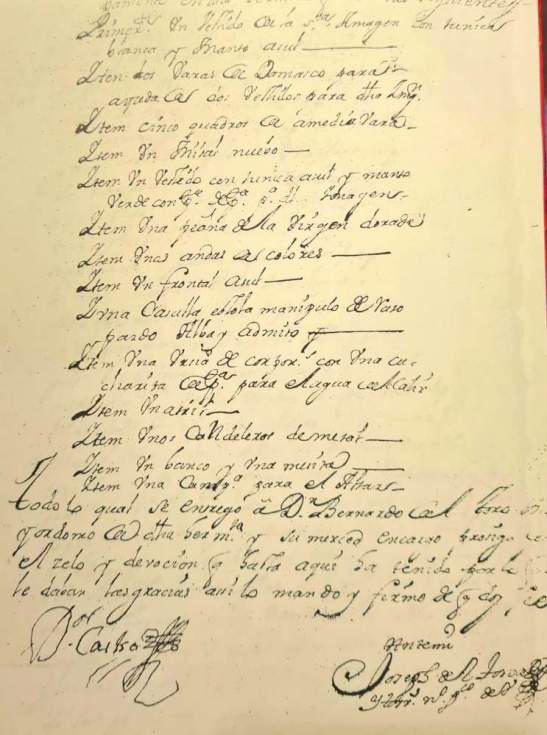 Primer.te Un Vestido de la S.ta Imagen con tunica
blanca y Manto azul
Iten dos Varas de Damasco para
ayuda de dos Vestidos para dha Img.
Item cinco quadros de amedia Vara
Item Un Misal nuebo
Item Un Vestido con tunica azul y manto
Verde con Imagen
Item Una peana de la Virgen dorada
Item Unas andas de colores
Item Un frontal azul
Y Una Casulla estola manipulo de Raso
pardo Alba y Amito
Item Una de corpor.s con Una cu-
charita de para el agua del Caliz
Item Un atril
Item Unos Candeleros de mesa
Item Un banco y Una mesita
Item Una Camp.a para el Altar
todo lo qual se entregó a D.n Bernardo del Toro
yordomo de dha herm.d y su merced encargo prosiga
el zelo y devocion q hasta aqui ha tenido por lo
le daban las gracias asi lo mando y firmo de q doy
D.or Castro
Antemi
Joseph